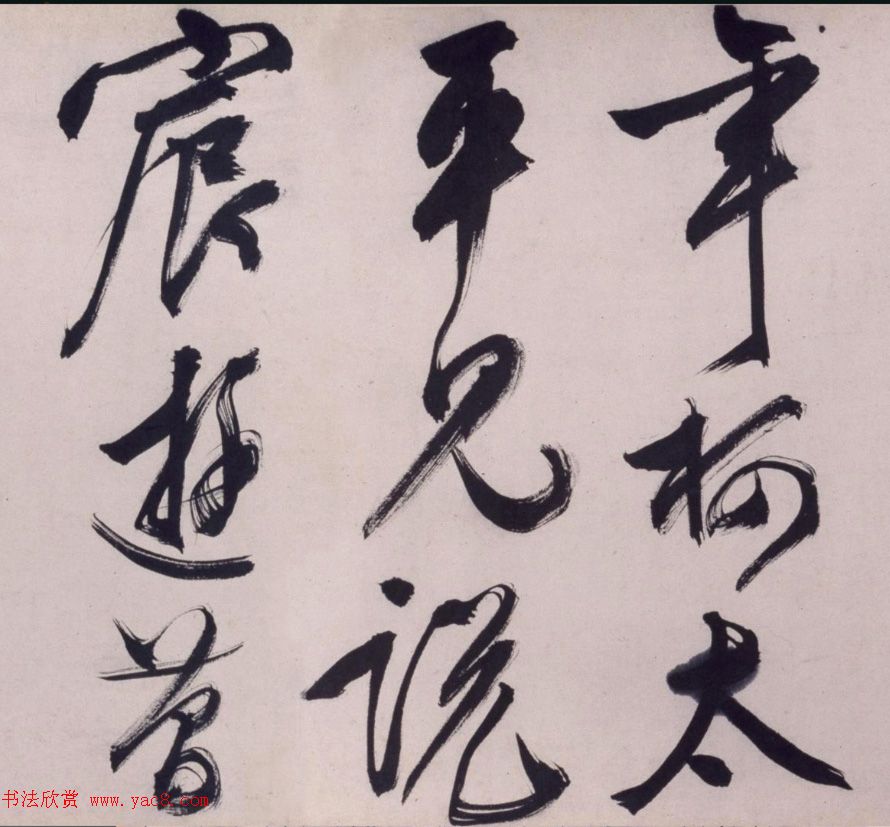 年柯太
平見說
宸遊首
书法欣赏 www.yac8.com